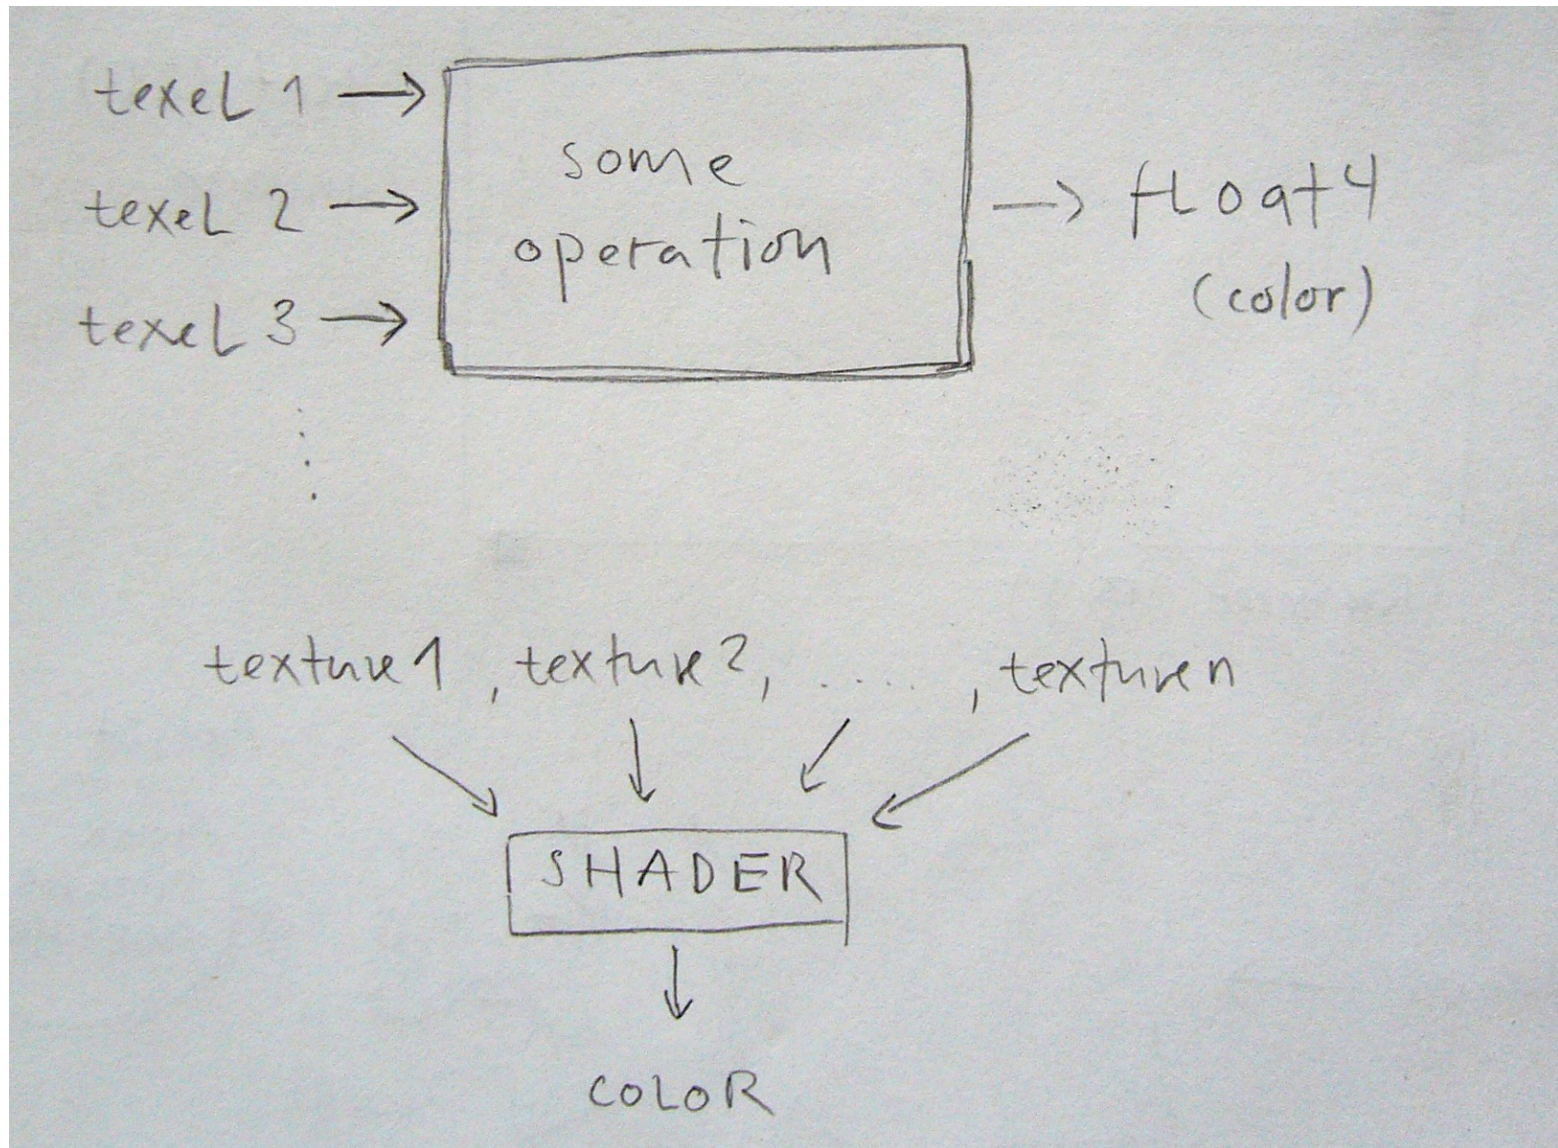 texel 1 →
texel 2 →
texel 3 →
some
operation
→ float4
(color)
texture1, texture2, ....., texturen
SHADER
COLOR